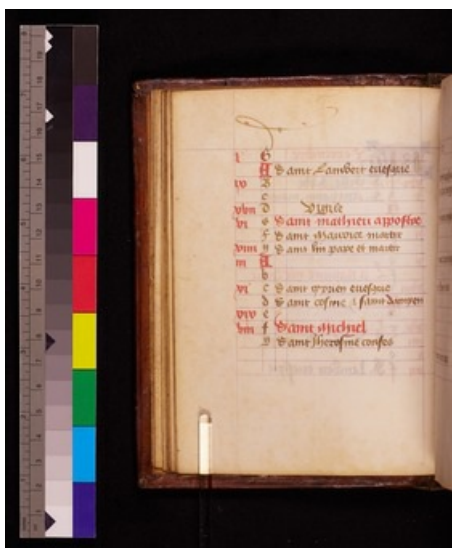 G
A Saint Lambert euesque
B
c
xvii d Vigile
vi e Saint mathieu appostre
f Saint Maurice martir
xiiii g Saint lin pape et martir
iii A
b
c Saint cyprien euesque
d Saint cosme & saint damyen
xix e
viii f Saint Michiel
g Saint Jherosme confes